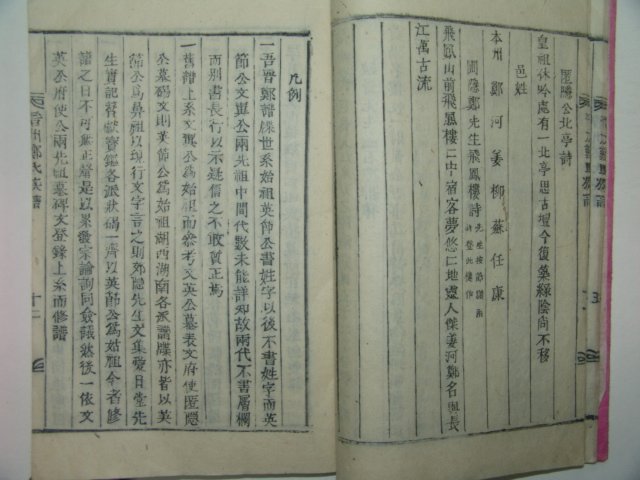 匿隱公北亭詩
皇祖休吟處有一北亭思古壇今復築綠陰尚不移
邑姓
本州 鄭 河 姜 柳 蘇 任 康
圃隱鄭先生飛鳳樓詩
飛鳳山前飛鳳樓樓中宿客夢悠悠地靈人傑姜河鄭名與長
江萬古流
凡例
一吾晋鄭譜牒世系始祖英節公書姓字以後不書姓字而英
節公文與公兩先祖中間代數未能詳知故兩代不書層欄
而別書長行以示疑信之不敢質正焉
一舊譜上系文與公爲始祖而參考文英公墓表文府使匿隱
公墓碣文則英節公爲始祖湖西湖南各派譜牒亦皆以英
節公爲鼻祖以現行文字言之則郊隱先生文集愛日堂先
生實記
各派狀碣一齊以英節公爲始祖今者修
譜之日不可無正
是以
宗論詢同僉議然後一依文
英公府使公兩先祖墓碑文登錄上系而修譜
晋州鄭氏族譜
十二